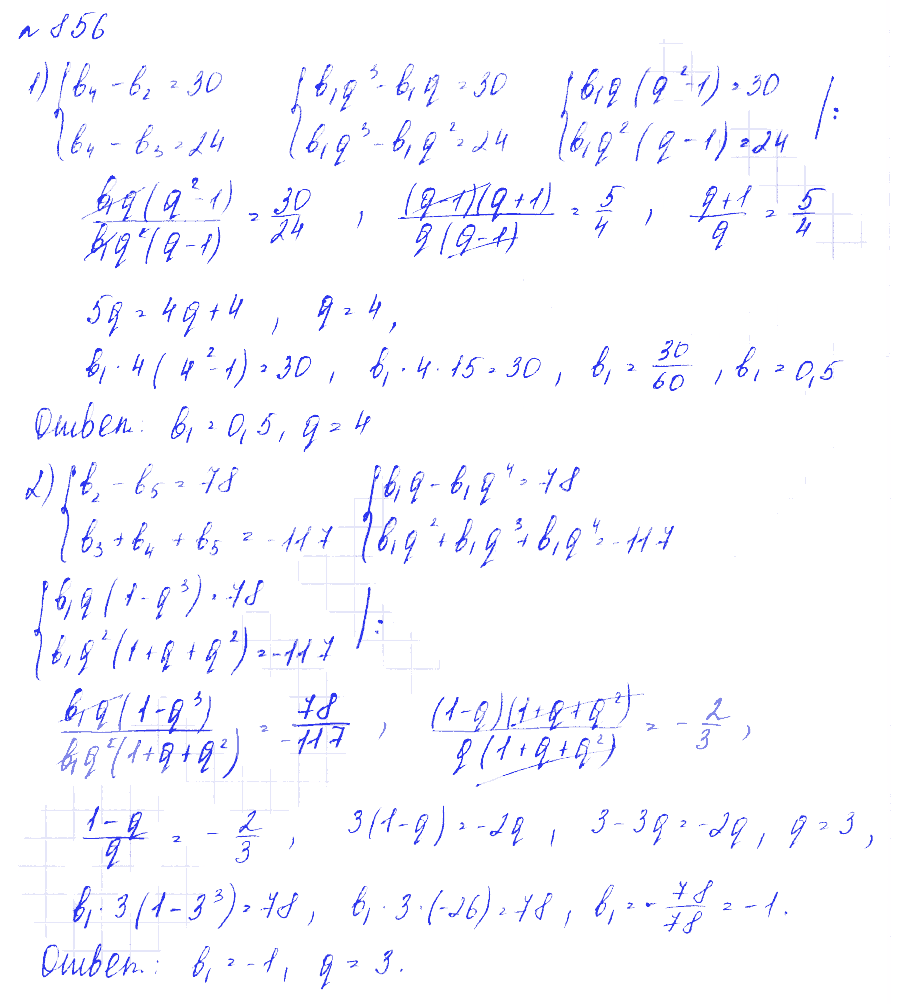 № 856
1) { b₄ − b₂ = 30 { b₁q³ − b₁q = 30 { b₁q (q² − 1) = 30 | :
b₄ − b₃ = 24 b₁q³ − b₁q² = 24 b₁q² (q − 1) = 24
b₁q (q² − 1) / b₁q² (q − 1) = 30/24 , (q − 1)(q + 1) / q (q − 1) = 5/4 , q + 1 / q = 5/4
5q = 4q + 4 , q = 4,
b₁ · 4 ( 4² − 1) = 30 , b₁ · 4 · 15 = 30 , b₁ = 30/60 , b₁ = 0,5
Ответ: b₁ = 0,5, q = 4
2) { b₂ − b₅ = 78 { b₁q − b₁q⁴ = 78
b₃ + b₄ + b₅ = −117 b₁q² + b₁q³ + b₁q⁴ = −117
{ b₁q (1 − q³) = 78 | :
b₁q² (1 + q + q²) = −117
b₁q (1 − q³) / b₁q² (1 + q + q²) = 78/−117 , (1 − q)(1 + q + q²) / q (1 + q + q²) = − 2/3 ,
1 − q / q = − 2/3 , 3(1 − q) = −2q , 3 − 3q = −2q , q = 3 ,
b₁ · 3 (1 − 3³) = 78 , b₁ · 3 · (−26) = 78 , b₁ = − 78/78 = −1.
Ответ: b₁ = −1, q = 3.